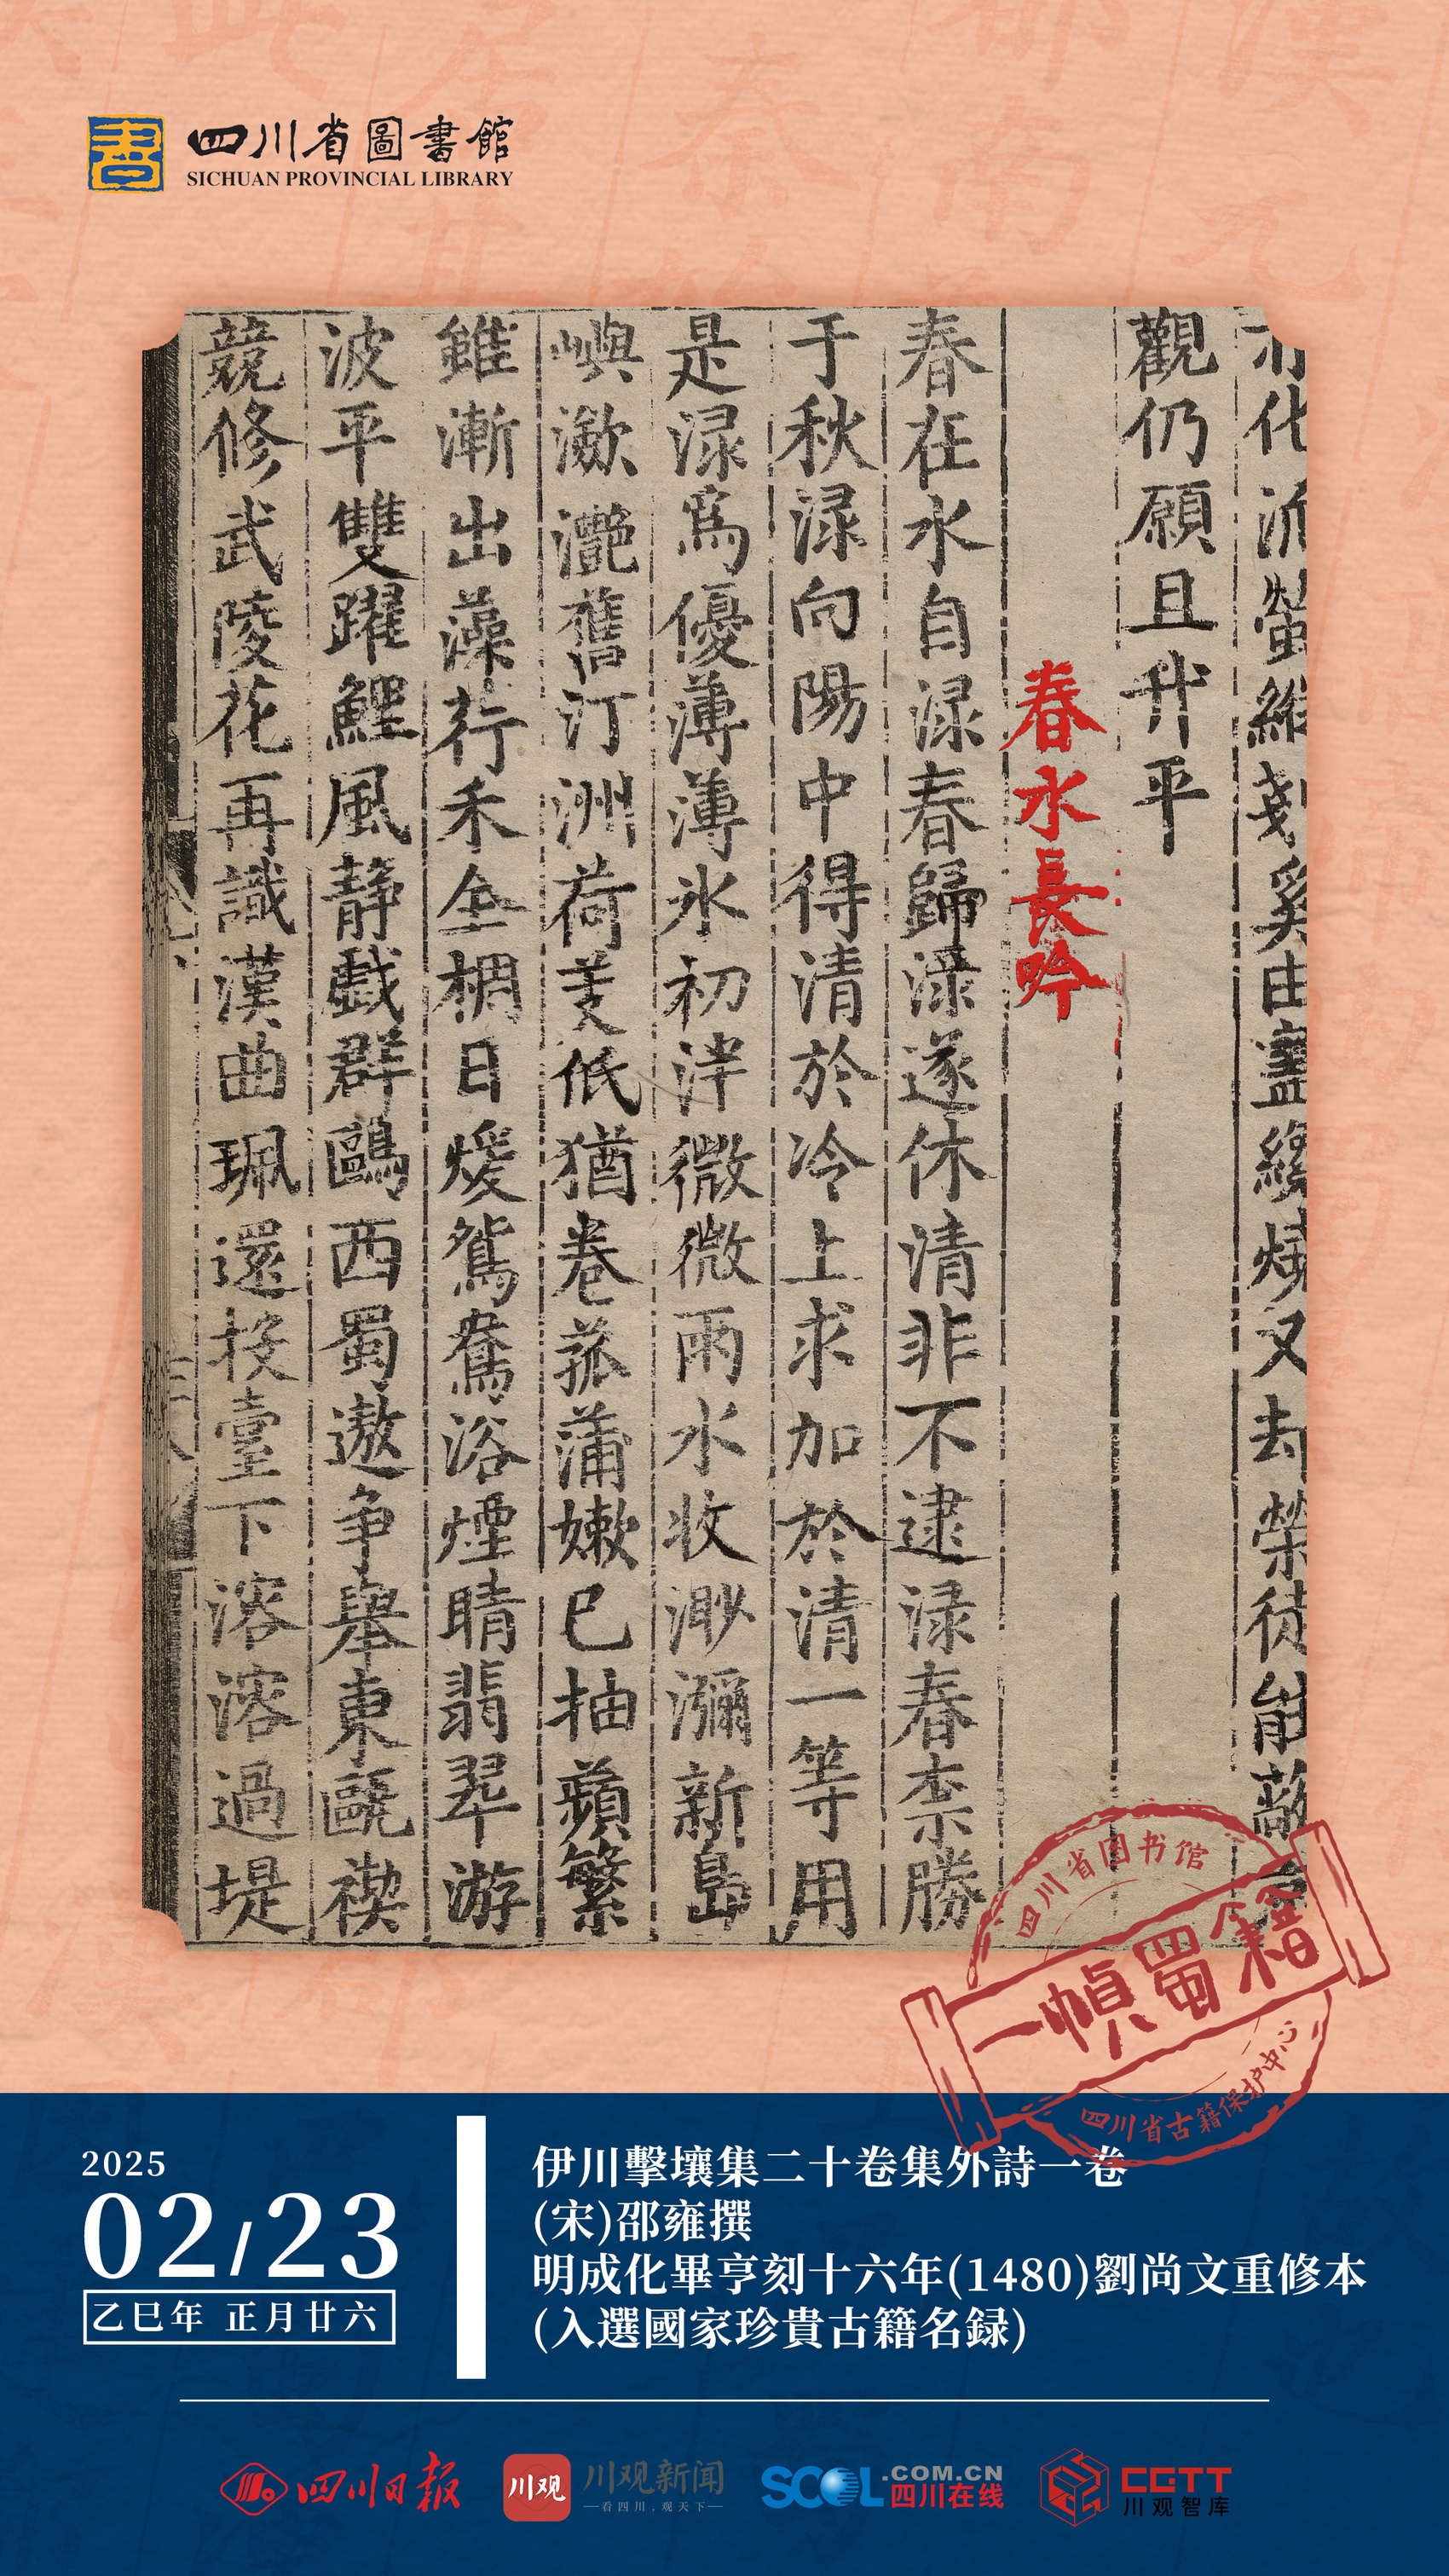 書
四川省圖書館
SICHUAN PROVINCIAL LIBRARY
化 由 又去榮徒能敵
觀仍願且升平
春水長吟
春在水自渌春歸渌遂休清非不逮渌春柰勝
于秋渌向陽中得清於冷上求加於清一等用
是渌爲優薄薄氷初泮微微雨水收渺瀰新島
嶼瀲灔舊汀洲荷芰低猶卷菰蒲嫰已抽蘋蘩
雖漸出藻荇禾全椆日煖鴛鴦浴煙晴翡翠游
波平雙躍鯉風静戯群鷗西蜀遨争舉東甌禊
競修武陵花再識漢曲珮還投臺下溶溶過堤
四川省图书馆
一幀蜀籍
四川省古籍保护中心
2025
02/23
乙巳年 正月廿六
伊川擊壤集二十卷集外詩一卷
(宋)邵雍撰
明成化畢亨刻十六年(1480)劉尚文重修本
(入選國家珍貴古籍名録)
四川日报
川观
川观新闻
—看四川,观天下—
SCOL.COM.CN
四川在线
CGTT
川观智库